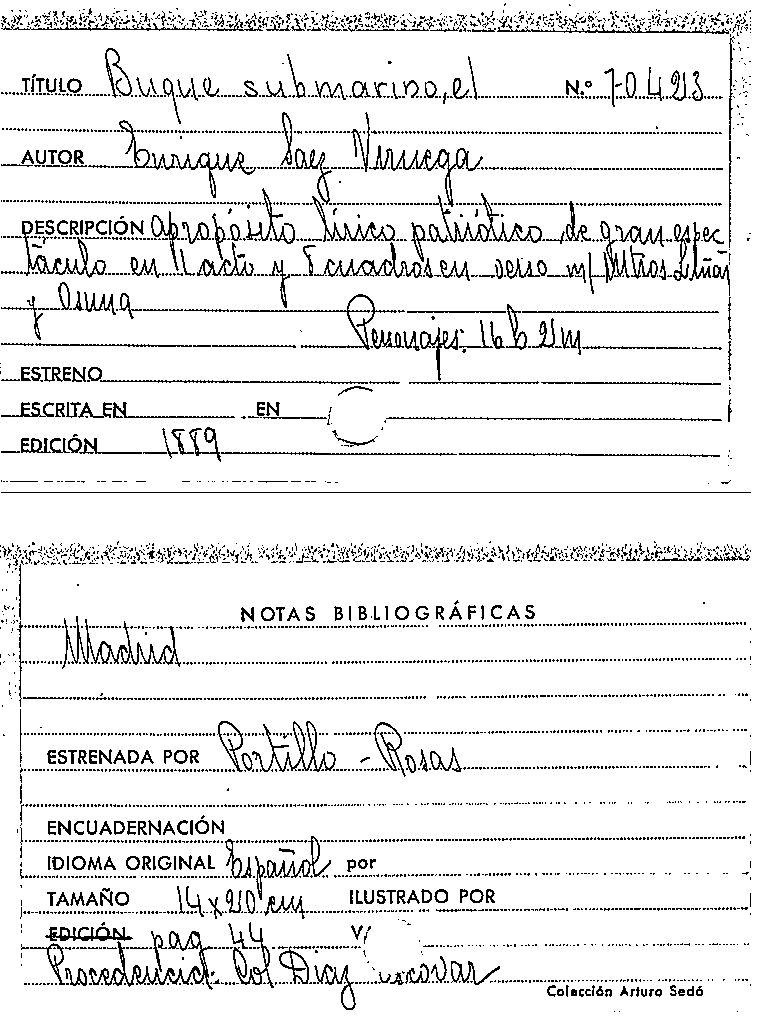 TÍTULO Buque submarino, el N.º 70423
AUTOR Enrique Saez Viruega
DESCRIPCIÓN apropósito lírico patriótico de gran espec
táculo en 1 acto y 5 cuadros en verso m/ Mtros
y Osuna
Personajes: 16 h 2 m
ESTRENO
ESCRITA EN EN
EDICIÓN 1889
NOTAS BIBLIOGRÁFICAS
Madrid
ESTRENADA POR Portillo - Rosas
ENCUADERNACIÓN
IDIOMA ORIGINAL Español por
TAMAÑO 14 x 20 cm ILUSTRADO POR
EDICIÓN pag 44
Procedencia: Col Diaz
Colección Arturo Sedó